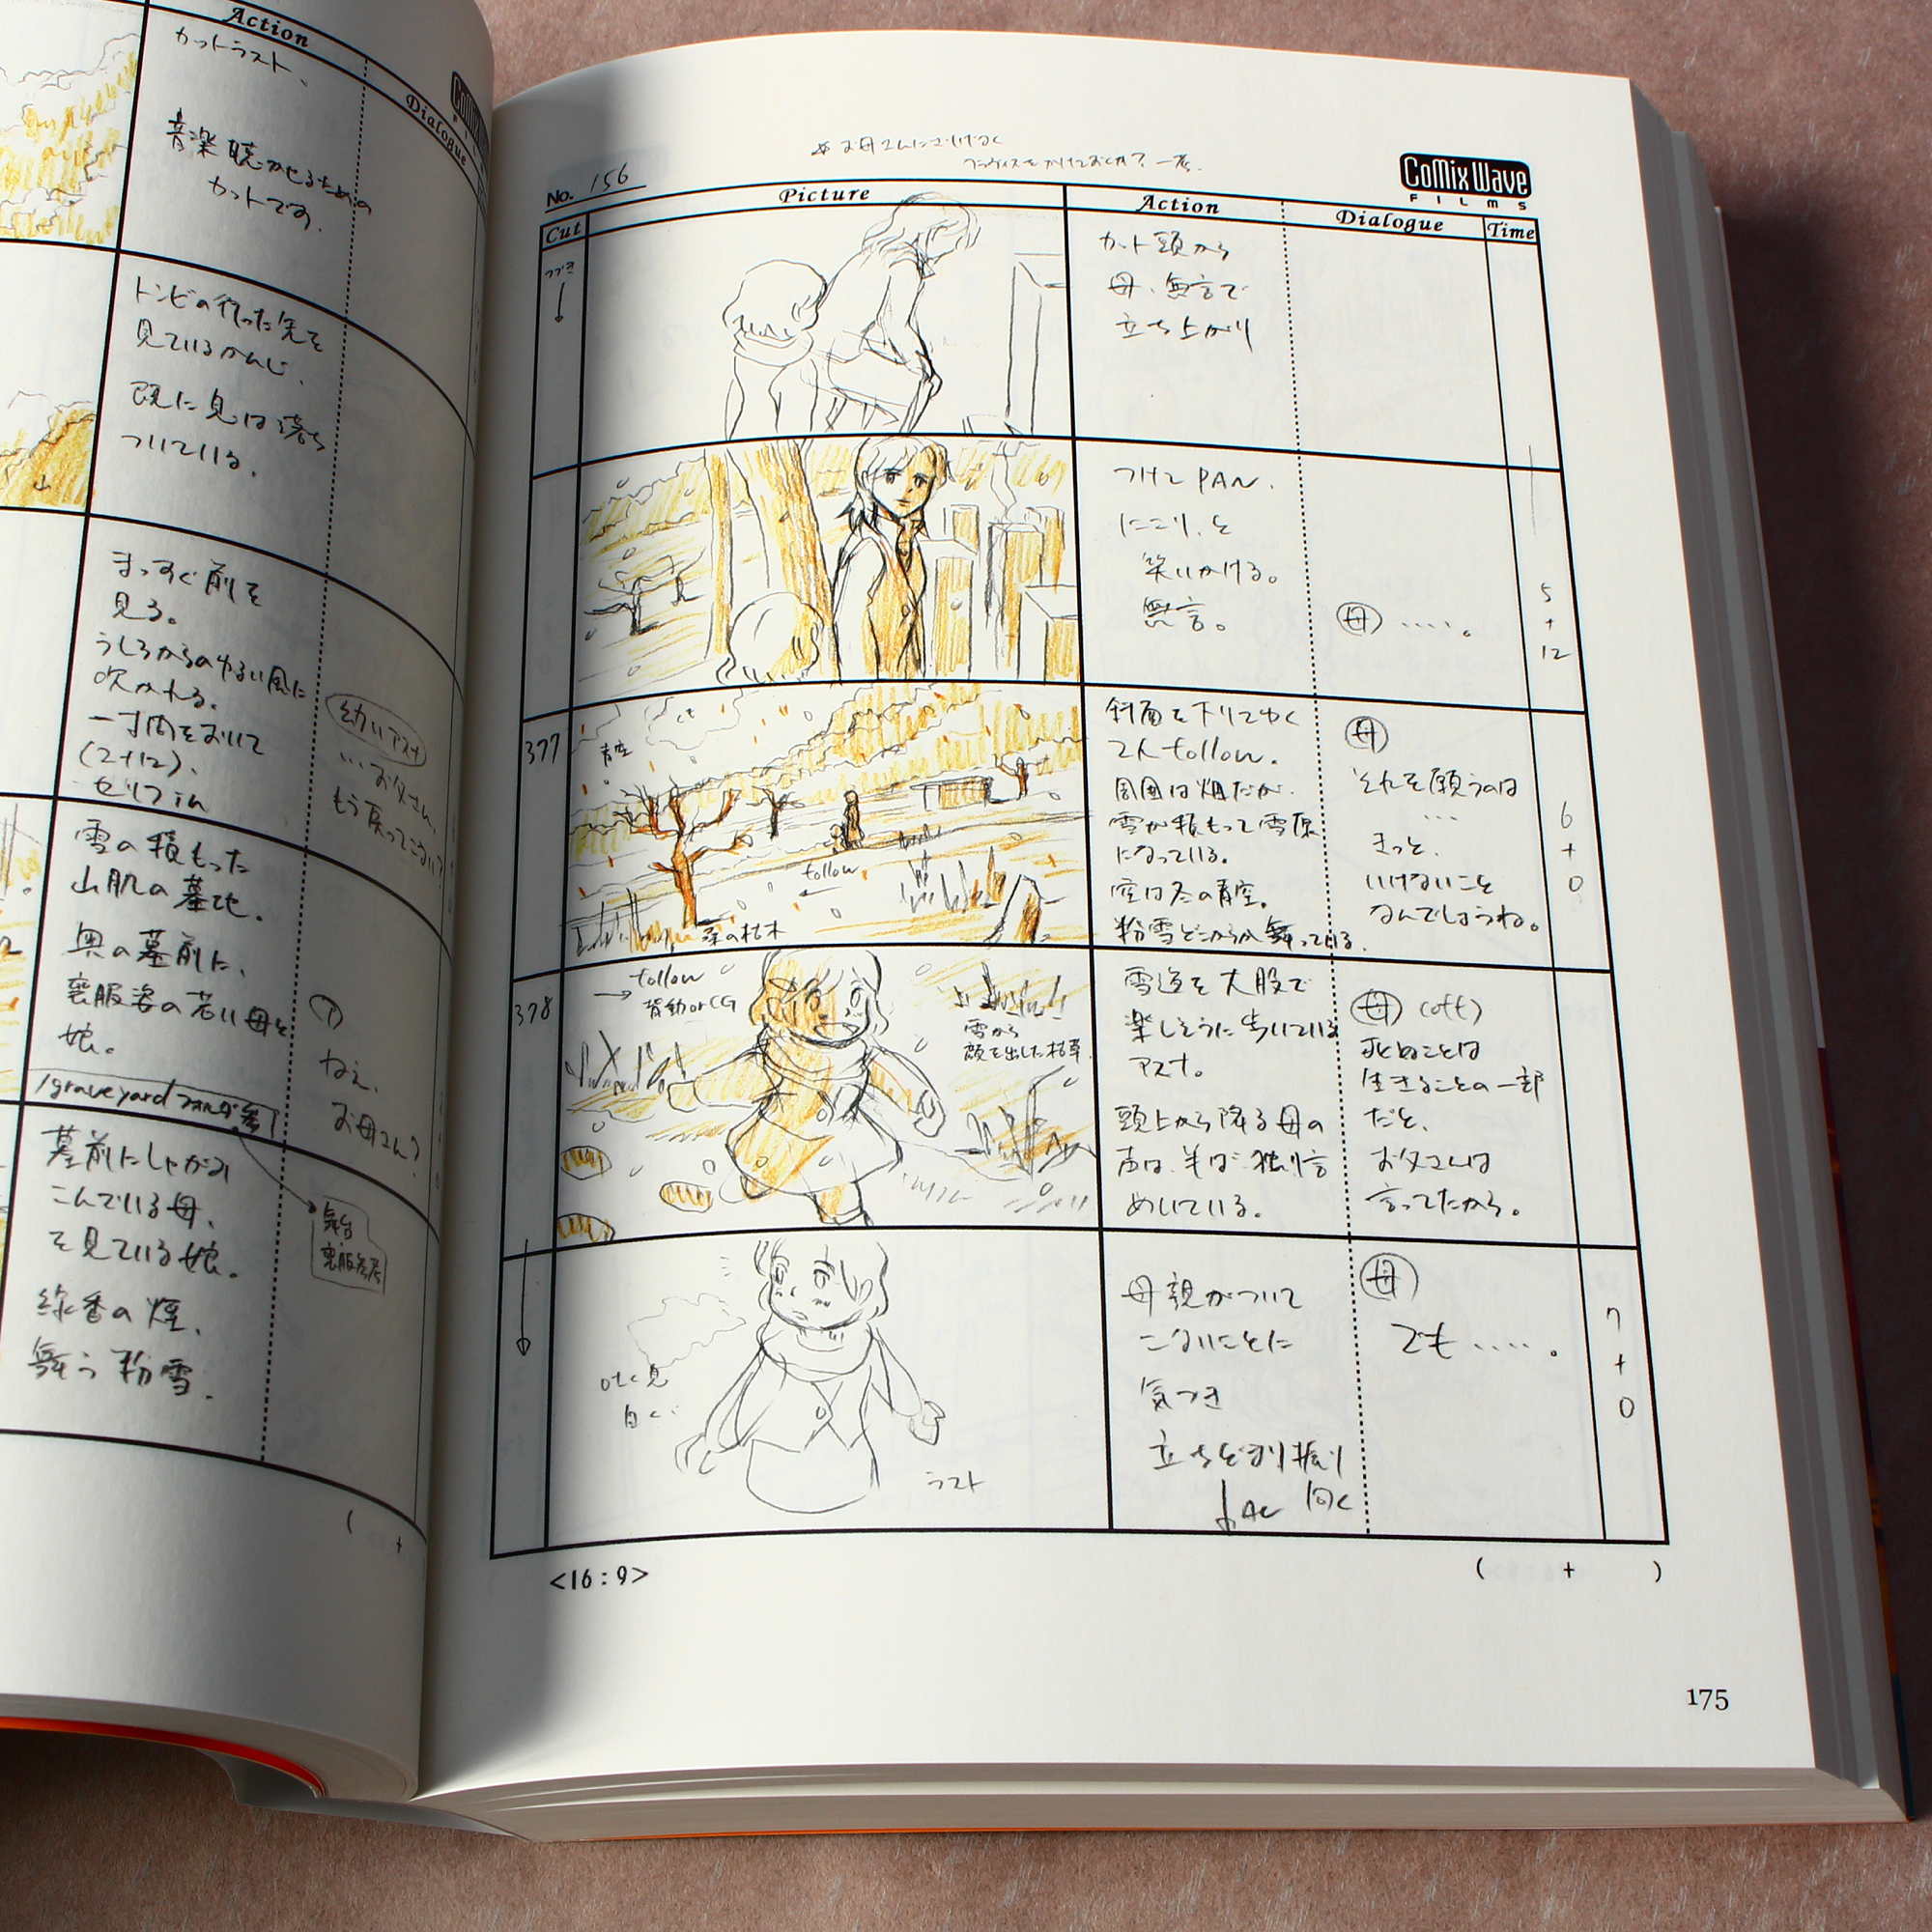 Action
カットラスト、
音楽聴かせるための
カットです.
CoMix
Dialogue
トンビの行った先を
見ているかんじ.
既に息は落ち
ついている.
山
まっすぐ前を
見る。
うしろからのゆるい風に
吹かれる.
一寸間をおいて
(2+12)、
セリフin
幼いアスナ
…お父さん、
もう戻ってこない?
雪の積もった
山肌の墓地.
奥の墓前に、
喪服姿の若い母と
娘.
/graveyardフォルダ参
ねぇ、
お母さん?
墓前にしゃがみ
こんでいる母、
を見ている娘。
線香の煙、
舞う粉雪.
喪服参考
( +
お母さんにさりげなく
No. 156
CoMix Wave
FILMS
Cut
Picture
Action
Dialogue
Time
つづき
カット頭から
母、無言で
立ち上がり
つけてPAN.
にこり、と
笑いかける。
無言。
母 ……。
5
+
12
377
青空
follow
桑の枯木
斜面を下りてゆく
2人follow.
周囲は畑だが、
雪が積もって雪原
になっている.
空は冬の青空.
粉雪どこからか舞っている.
母
それを願うのは
…
きっと、
いけないこと
なんでしょうね。
6
+
0
378
follow
背動orCG
雪から
顔を出した枯草
雪道を大股で
楽しそうに歩いている
アスナ。
頭上から降る母の
声は、半ば独り言
めいている.
母 (off)
死ぬことは
生きることの一部
だと、
お父さんは
言ってたから。
吐く息
白く
ラスト
母親がついて
こないことに
気づき
立ちどまり振り
向く
母
でも……。
7
+
0
<16:9>
( + )
175